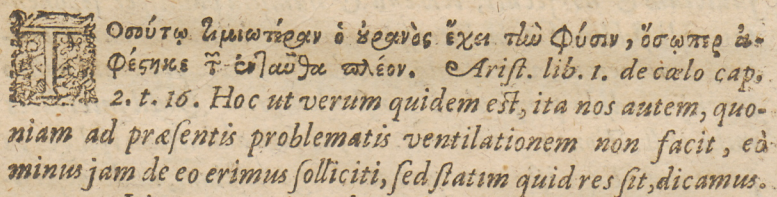 Τοσούτῳ τιμιωτέραν ὁ οὐρανὸς ἔχει τὴν φύσιν, ὅσῳπερ ἀ-
φέςηκε τῶν ἐνταῦθα πλέον. Ariſt. lib. 1. de cœlo cap.
2. t. 16. Hoc ut verum quidem eſt, ita nos autem, quo-
niam ad præſentis problematis ventilationem non facit, eò
minus jam de eo erimus ſolliciti, ſed ſtatim quid res ſit, dicamus.